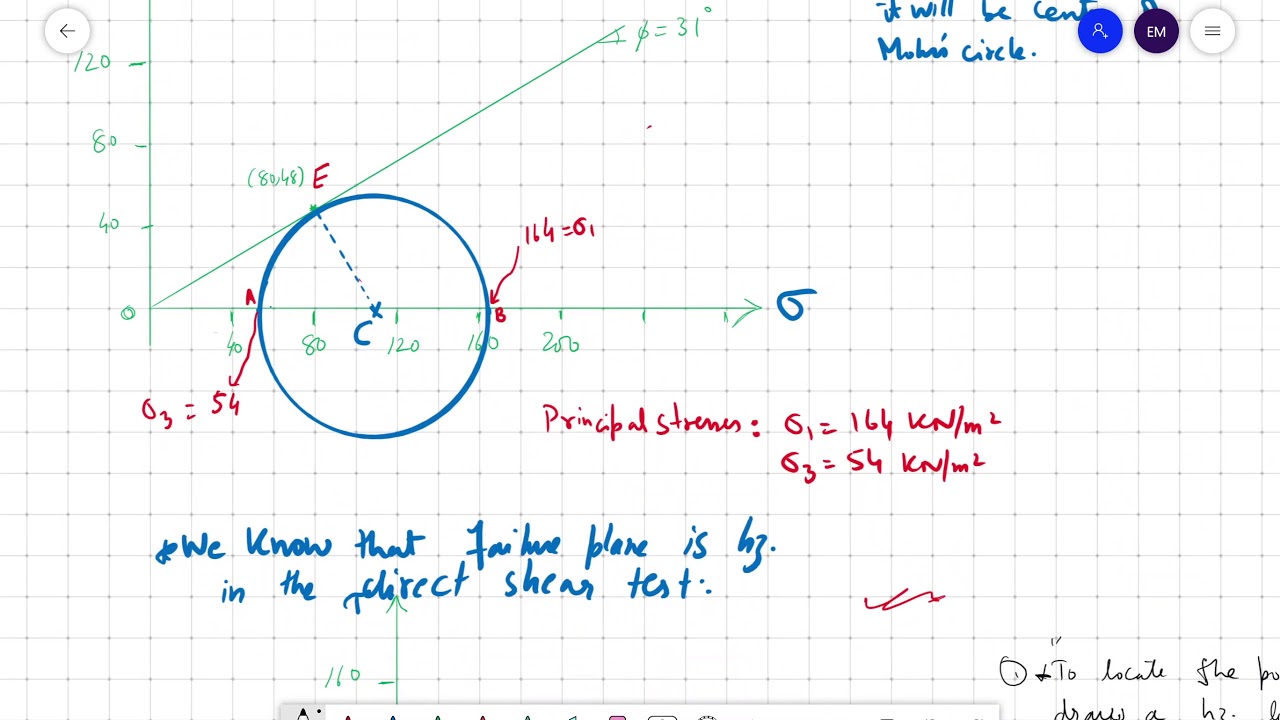 it will be cent
Mohr's circle.
EM
ϕ = 31°
120
80
(80,48) E
40
164 = σ1
A
B
0
C
σ
40 80 120 160 200
σ3 = 54
Principal stresses : σ1 = 164 KN/m²
σ3 = 54 KN/m²
*We know that failure plane is hz.
in the direct shear test.
160
① *To locate the po
draw a hz.